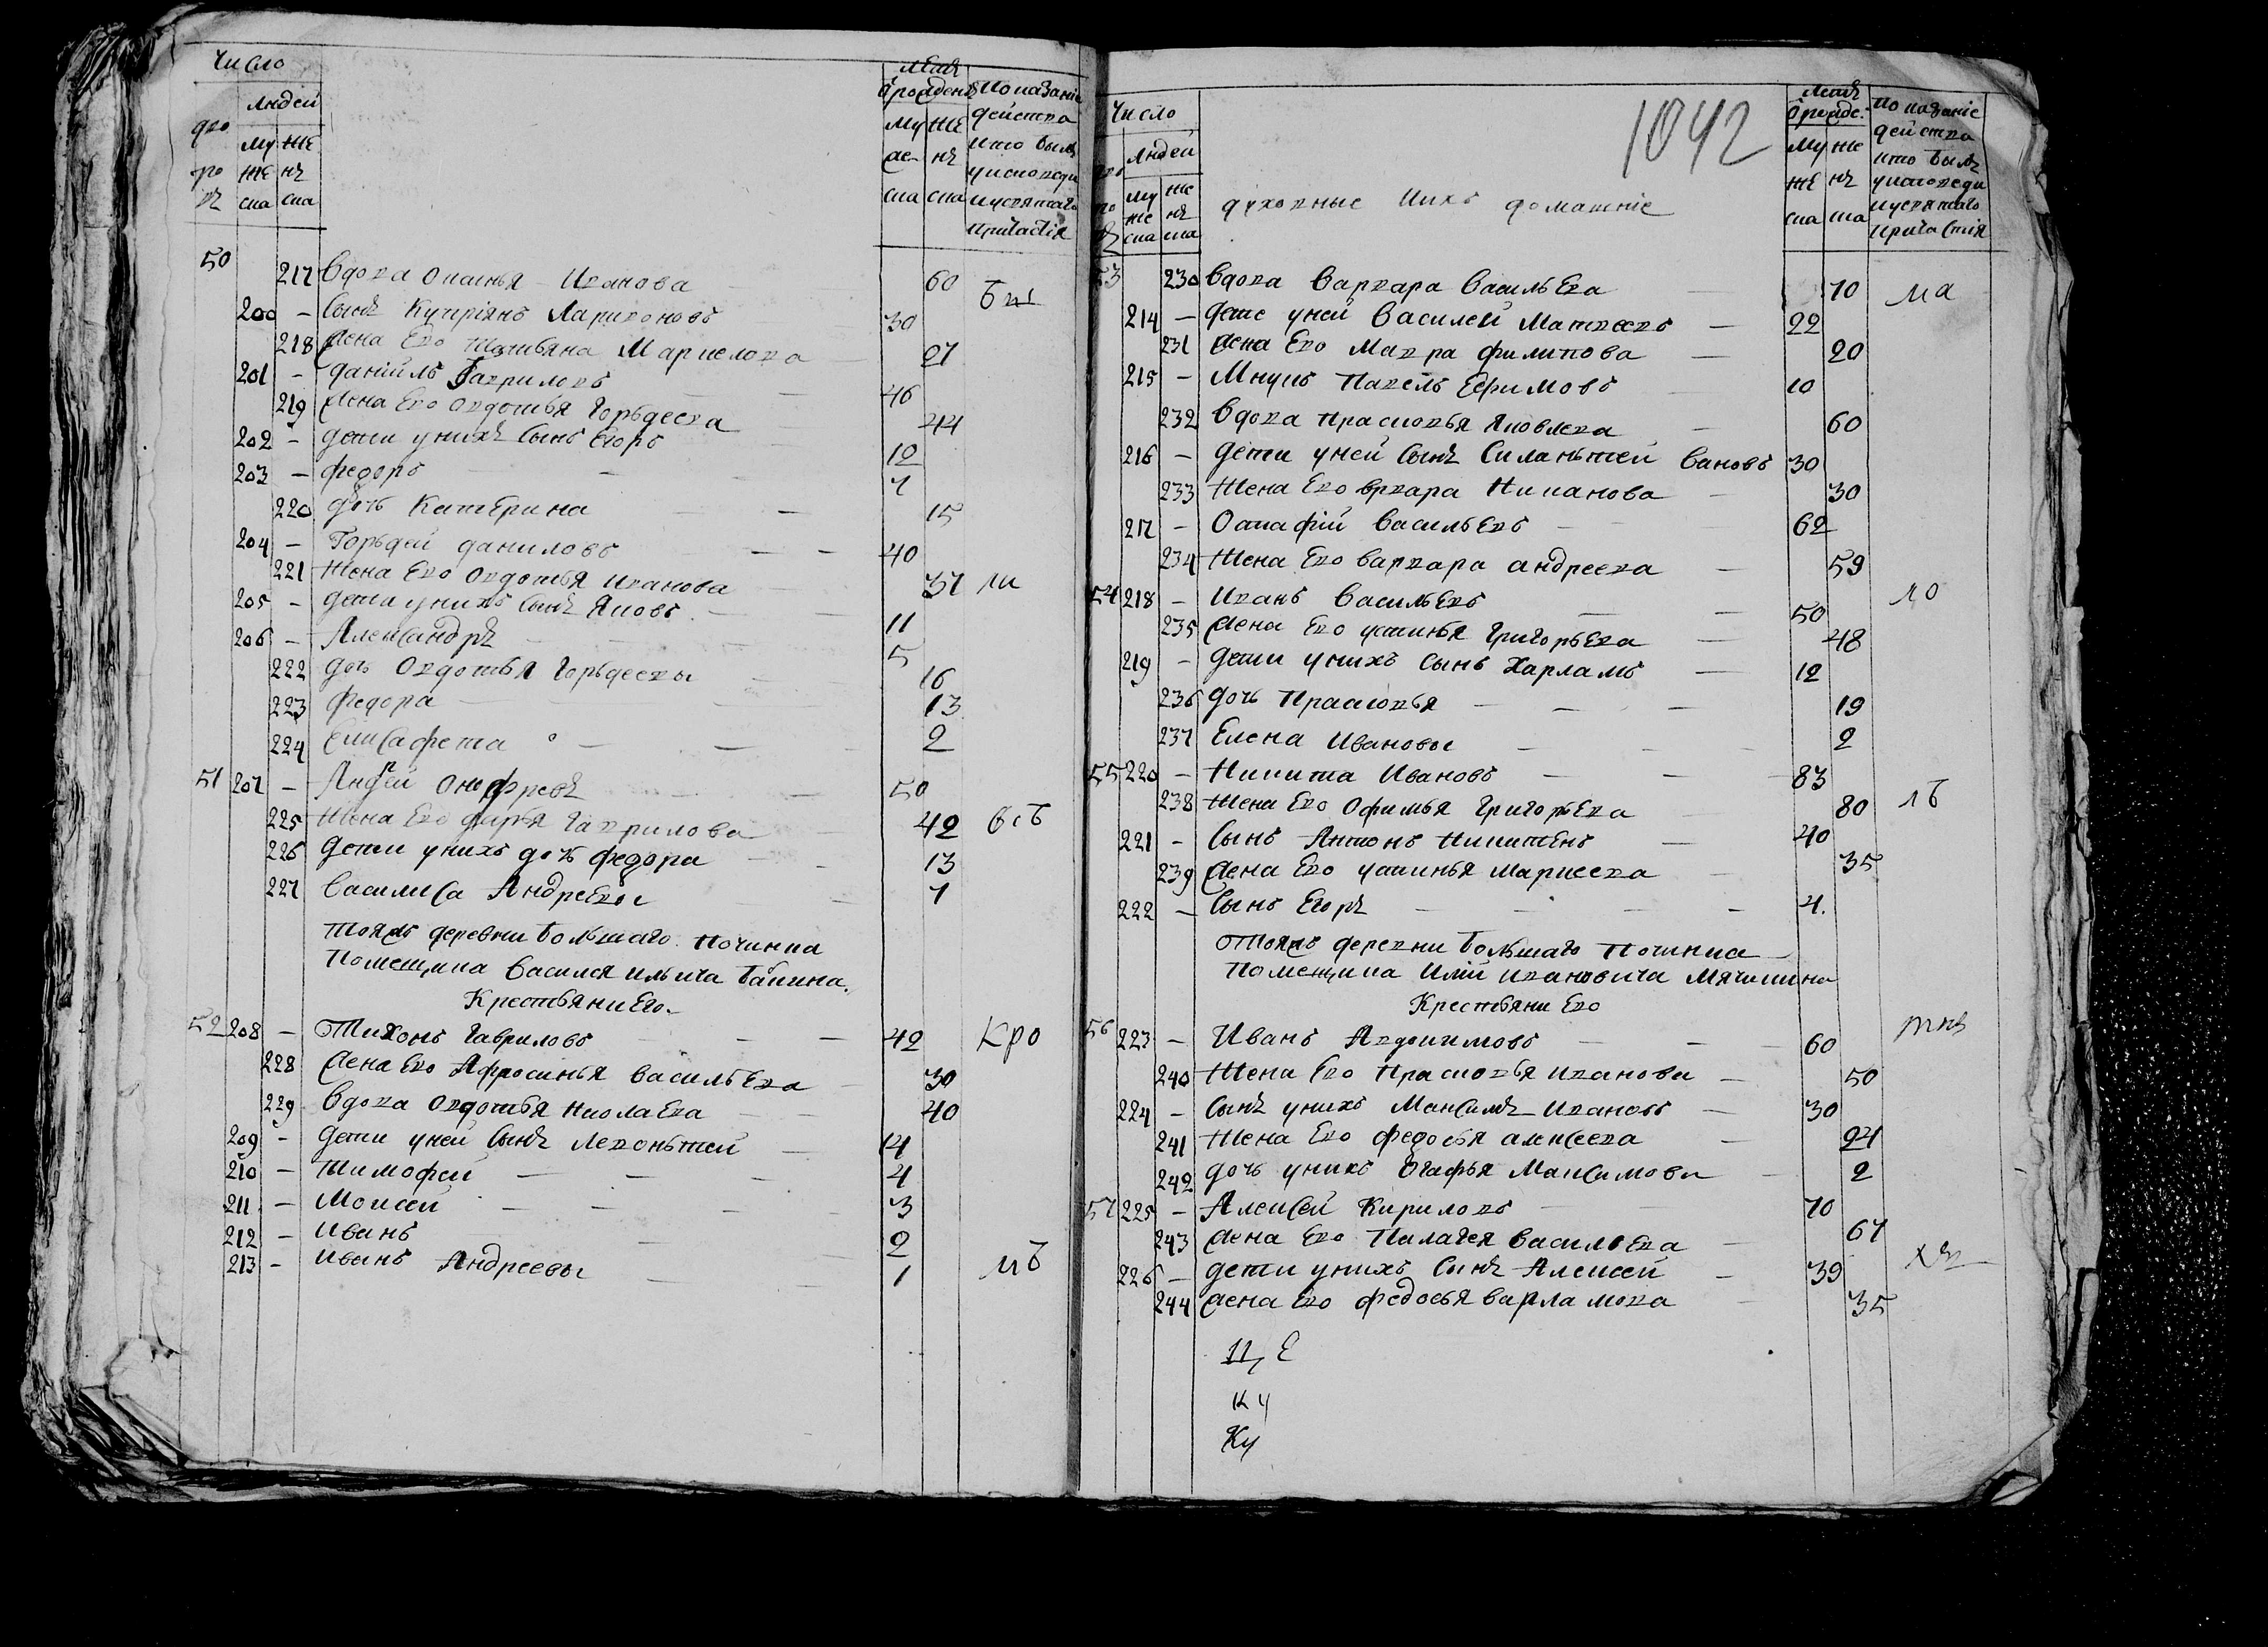 Число
Людей
дво
ро
въ
му
же
ска
же
нъ
ска
Летъ
от рожденія
му
же
ска
же
нъ
ска
Показаніе
действа
кто былъ
у исповеди
и у святаго
причастія
50 217 Вдова Иванова 60
200 – Сынъ Купріянъ Ларионовъ 30
218 Жена Ево Маркелова 27
201 – Даніилъ Гавриловъ 46
219 Жена Ево Овдотья Горьдеева 44
202 – дети унихъ Сынъ Егоръ 12
203 – Федоръ 7
220 дочь Катерина 15
204 – Горьдей даниловъ 40
221 Жена Ево Овдотья Иванова 37
205 – дети унихъ Сынъ Яковъ 11
206 – Александръ 5
222 дочь Овдотья Горьдеевы 16
223 Федора 13
224 Елисафета 2
51 207 – Онофревъ 50
225 Жена Ево дарья Гаврилова 42
226 дети унихъ дочь федора 13
227 Василиса Андреевы 7
Тояжъ деревни Большаго Починка
Помещика Василея Ильича
Крестьяни Ево
52 208 – Тихонъ Гавриловъ 42
228 Жена Ево Афросинья Васильева 30
229 Вдова Овдотья Николаева 40
209 – дети уней Сынъ Левонътей 14
210 – Тимофей 4
211 – Моисей 3
212 – Иванъ 2
213 – Иванъ Андреевы 1
1042
Число
Людей
му
же
ска
же
нъ
ска
духовные ихъ домашніе
Летъ
му
же
ска
же
нъ
ска
Показаніе
действа
кто былъ
у исповеди
и у святаго
причастія
53 230 Вдова Варвара Васильева 70
214 – дети уней Василей Матвеевъ 22
231 Жена Ево Мавра Филипова 20
215 – Внукъ Павелъ Ефимовъ 10
232 Вдова Прасковья Яковлева 60
216 – дети уней Сынъ Силанътей 30
233 Жена Ево 30
217 – Васильевъ 62
234 Жена Ево варвара андреева 59
54 218 – Иванъ Васильевъ 50
235 Жена Ево устинья Григорьева 48
219 – дети унихъ сынъ Харламъ 12
236 дочь Прасковья 19
237 Елена Ивановы 2
55 220 – Никита Ивановъ 83
238 Жена Ево Офимья Григорьева 80
221 – Сынъ Антонъ Никитинъ 40
239 Жена Ево устинья 35
222 – Сынъ Егоръ 4
Тояжъ деревни Большаго Починка
Помещика Ивановича
Крестьяни Ево
56 223 – Иванъ Авдокимовъ 60
240 Жена Ево Прасковья иванова 50
224 – Сынъ унихъ Максимъ Ивановъ 30
241 Жена Ево федосья алексеева 24
242 дочь унихъ Огафья Максимова 2
57 225 – Алексей Кириловъ 70
243 Жена Ево Пилагея Васильева 67
226 – дети унихъ Сынъ Алексей 39
244 Жена Ево федосья варламова 35